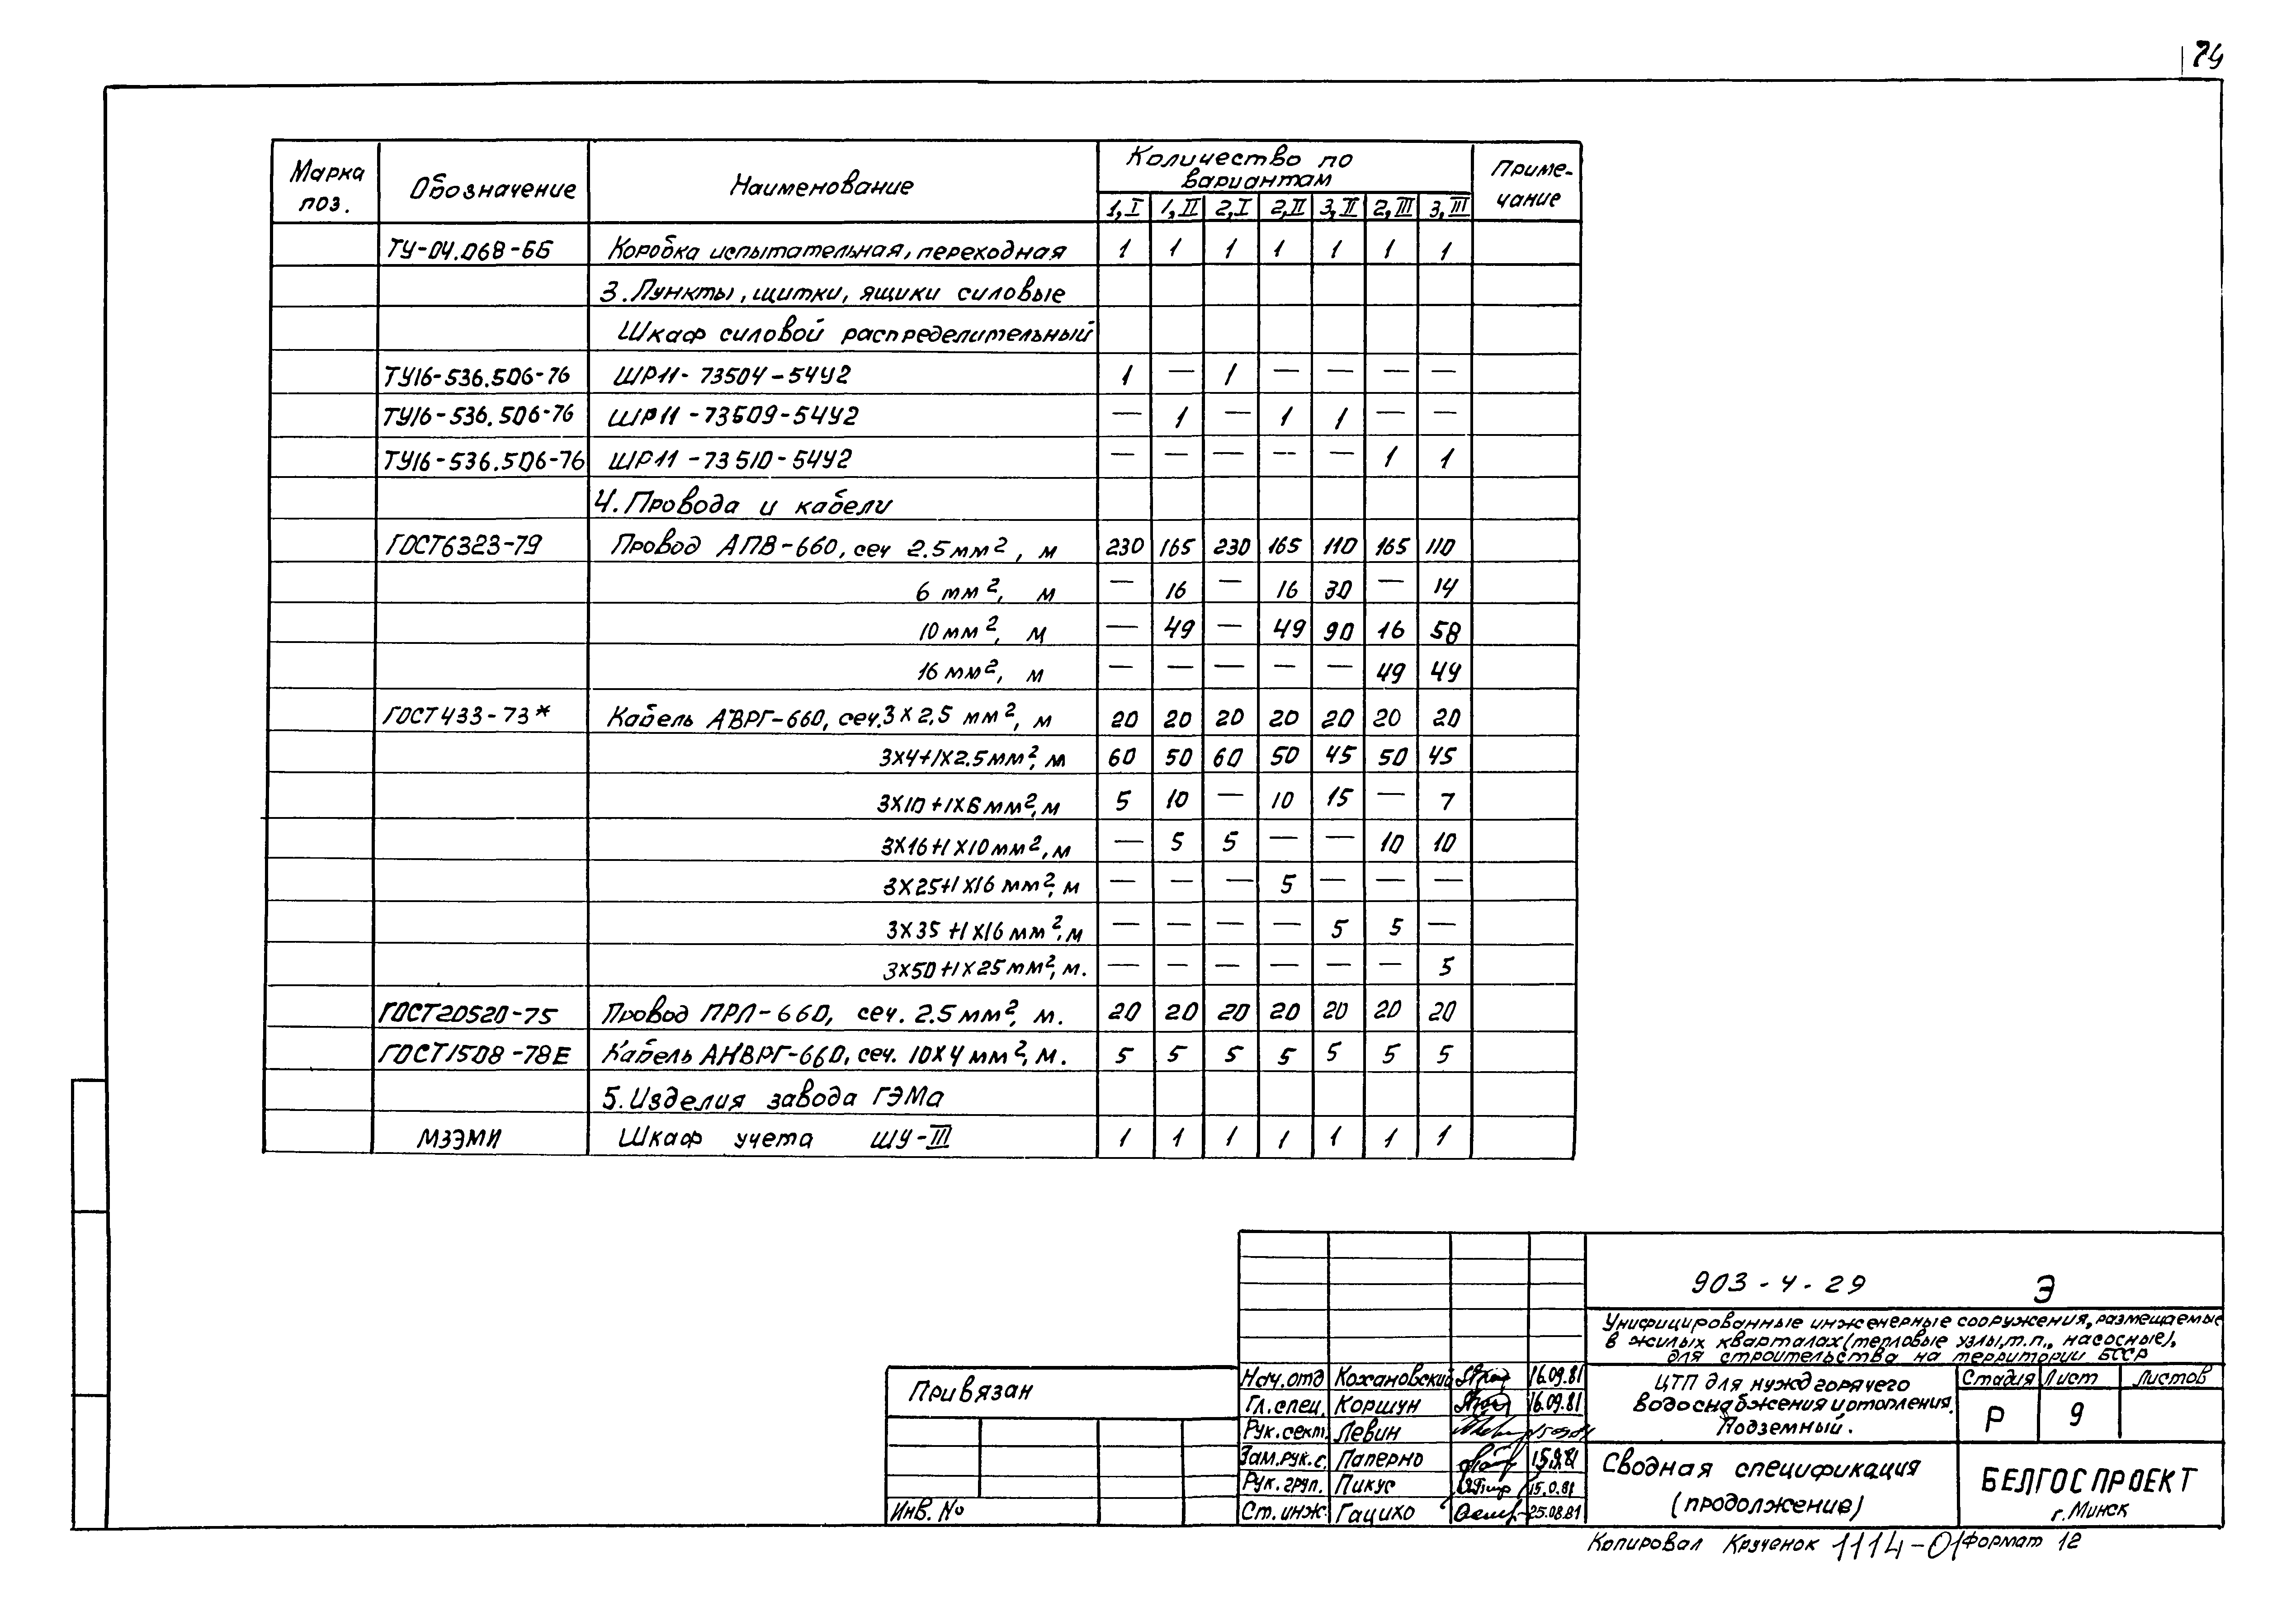 74
Марка поз. Обозначение Наименование Количество по вариантам Примечание
1,I 1,II 2,I 2,II 3,II 2,III 3,III
ТУ-04.068-66 Коробка испытательная, переходная 1 1 1 1 1 1 1
3. Пункты, щитки, ящики силовые
Шкаф силовой распределительный
ТУ16-536.506-76 ШР11-73504-54У2 1 — 1 — — — —
ТУ16-536.506-76 ШР11-73509-54У2 — 1 — 1 1 — —
ТУ16-536.506-76 ШР11-73510-54У2 — — — — — 1 1
4. Провода и кабели
ГОСТ6323-79 Провод АПВ-660, сеч 2.5 мм², м 230 165 230 165 110 165 110
6 мм², м — 16 — 16 30 — 14
10 мм², м — 49 — 49 90 16 58
16 мм², м — — — — — 49 44
ГОСТ433-73* Кабель АВРГ-660, сеч.3х2,5 мм², м 20 20 20 20 20 20 20
3х4+1х2.5мм², м 60 50 60 50 45 50 45
3х10+1х6мм², м 5 10 — 10 15 — 7
3х16+1х10мм², м — 5 5 — — 10 10
3х25+1х16 мм², м — — — 5 — — —
3х35+1х16 мм², м — — — — 5 5 —
3х50+1х25мм², м. — — — — — — 5
ГОСТ20520-75 Провод ПРЛ-660, сеч. 2.5 мм², м. 20 20 20 20 20 20 20
ГОСТ1508-78Е Кабель АКВРГ-660, сеч. 10х4 мм², м. 5 5 5 5 5 5 5
5. Изделия завода ГЭМа
МЗЭМИ Шкаф учета ШУ-III 1 1 1 1 1 1 1
903-4-29 Э
Унифицированные инженерные сооружения, размещаемые
в жилых кварталах (тепловые узлы, т.п., насосные),
для строительства на территории БССР
Привязан
Инв. №
Нач.отд Кожановский 16.09.81
Гл.спец. Коршун 16.09.81
Рук.сект. Левин
Зам.рук.с. Паперно
Рук.груп. Пикус
Ст. инж. Гацихо 25.08.81
ЦТП для нужд горячего
водоснабжения и отопления.
Подземный.
Стадия Лист Листов
Р 9
Сводная спецификация
(продолжение)
БЕЛГОСПРОЕКТ
г. Минск
Копировал Крученок 1114-01 Формат 12